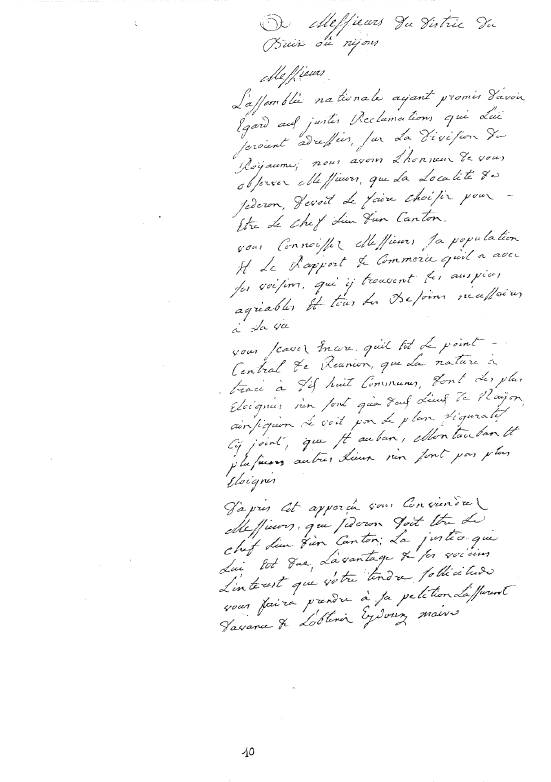 A Messieurs du district du
Buis ou nijons
Messieurs.
L'assemblée nationale ayant promis d'avoir
Egard aux justes Reclamations qui Lui
seroient adressées, sur La division du
Royaume; nous avons L'honneur de vous
observer Messieurs, que La Localité de
sederon, devoit Le faire choisir pour –
Etre Le chef Lieu d'un Canton.
vous Connoissez Messieurs sa population
Et Le Rapport de Commerce qu'il a avec
ses voisins, qui ij trouvent les auspices
agréables Et tous Les Besoins necessaires
à La vie
vous scavez Encore qu'il Est Le point –
Central de Reunion, que La nature a
tracé à dix huit Communes, dont Les plus
Eloignées n'en sont qu'a deux Lieues de Rayon,
ainsi qu'on Le voit par Le plan figuratif
Cy joint, que St auban, Montauban Et
plusieurs autres Lieux n'en sont pas plus
Eloignés
D'après Cet apperçu vous Conviendrez
Messieurs, que sederon doit Etre Le
chef Lieu d'un Canton; La justice qui
Lui Est due, L'avantage de ses voisins
L'interest que vôtre tendre sollicitude
vous faira prendre à sa petition L'assurent
d'avance de L'obtenir Eydoux maire
10